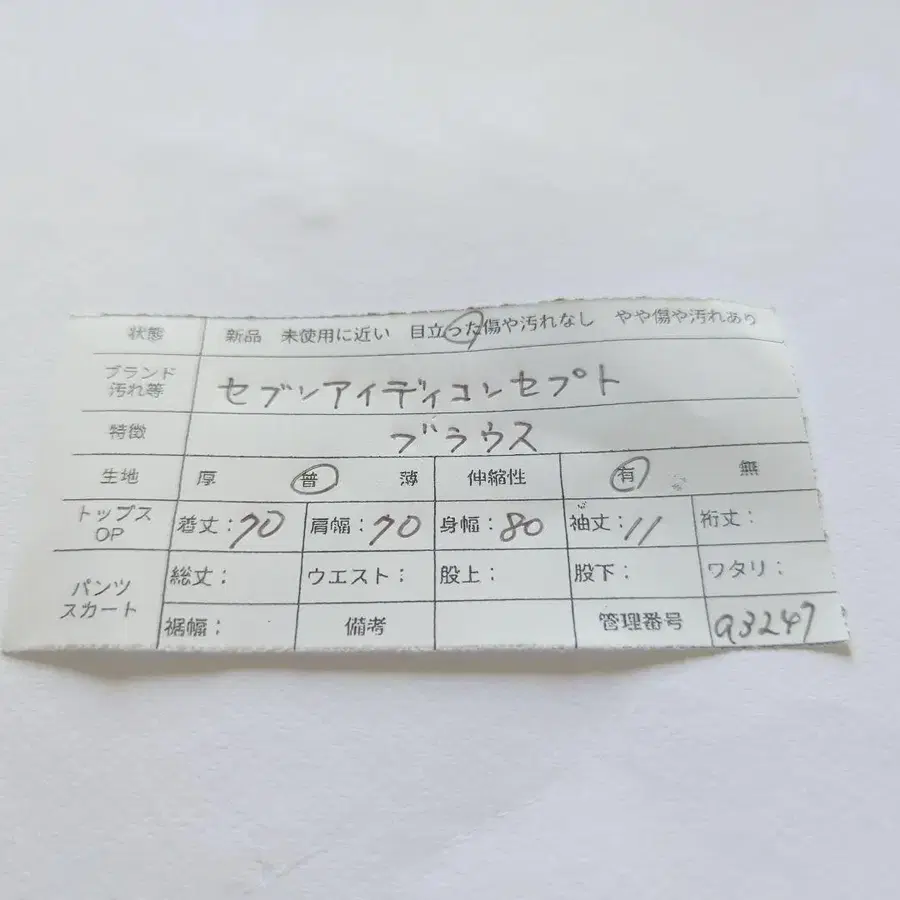 状態 新品 未使用に近い 目立った傷や汚れなし やや傷や汚れあり
ブランド 汚れ等 セブンアイディコンセプト
特徴 ブラウス
生地 厚 普 薄 伸縮性 有 無
トップス OP 着丈:70 肩幅:70 身幅:80 袖丈:11 裄丈:
パンツ スカート 総丈: ウエスト: 股上: 股下: ワタリ:
裾幅: 備考 管理番号 a3247